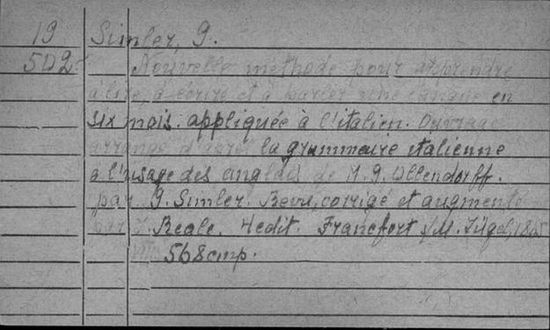 19 Simler, G.
502 Nouvelle méthode pour apprendre
à lire, à écrire et à parler une langue en
six mois. appliquée à l'italien. Ouvrage
arrangé d'après la grammaire italienne
à l'usage des anglais de H. G. Ollendorff.
par G. Simler. Revu, corrigé et augmenté
par Reale. 4 edit. Francfort s/M. Jügel,
568 cmp.